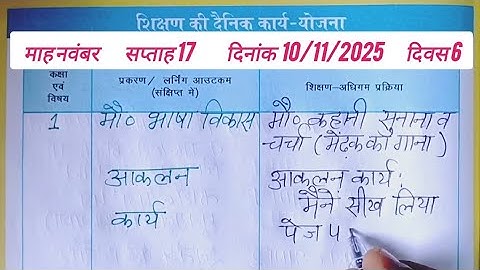 शिक्षण की दैनिक कार्य-योजना
माह नवंबर सप्ताह 17 दिनांक 10/11/2025 दिवस 6
कक्षा एवं विषय
प्रकरण / लर्निंग आउटकम (संक्षिप्त में)
शिक्षण-अधिगम प्रक्रिया
1
मौ० भाषा विकास
मौ० कहानी सुनाना व
चर्चा (मेंढक का गाना)
आकलन
कार्य
आकलन कार्य:
मैने सीख लिया
पेज 4